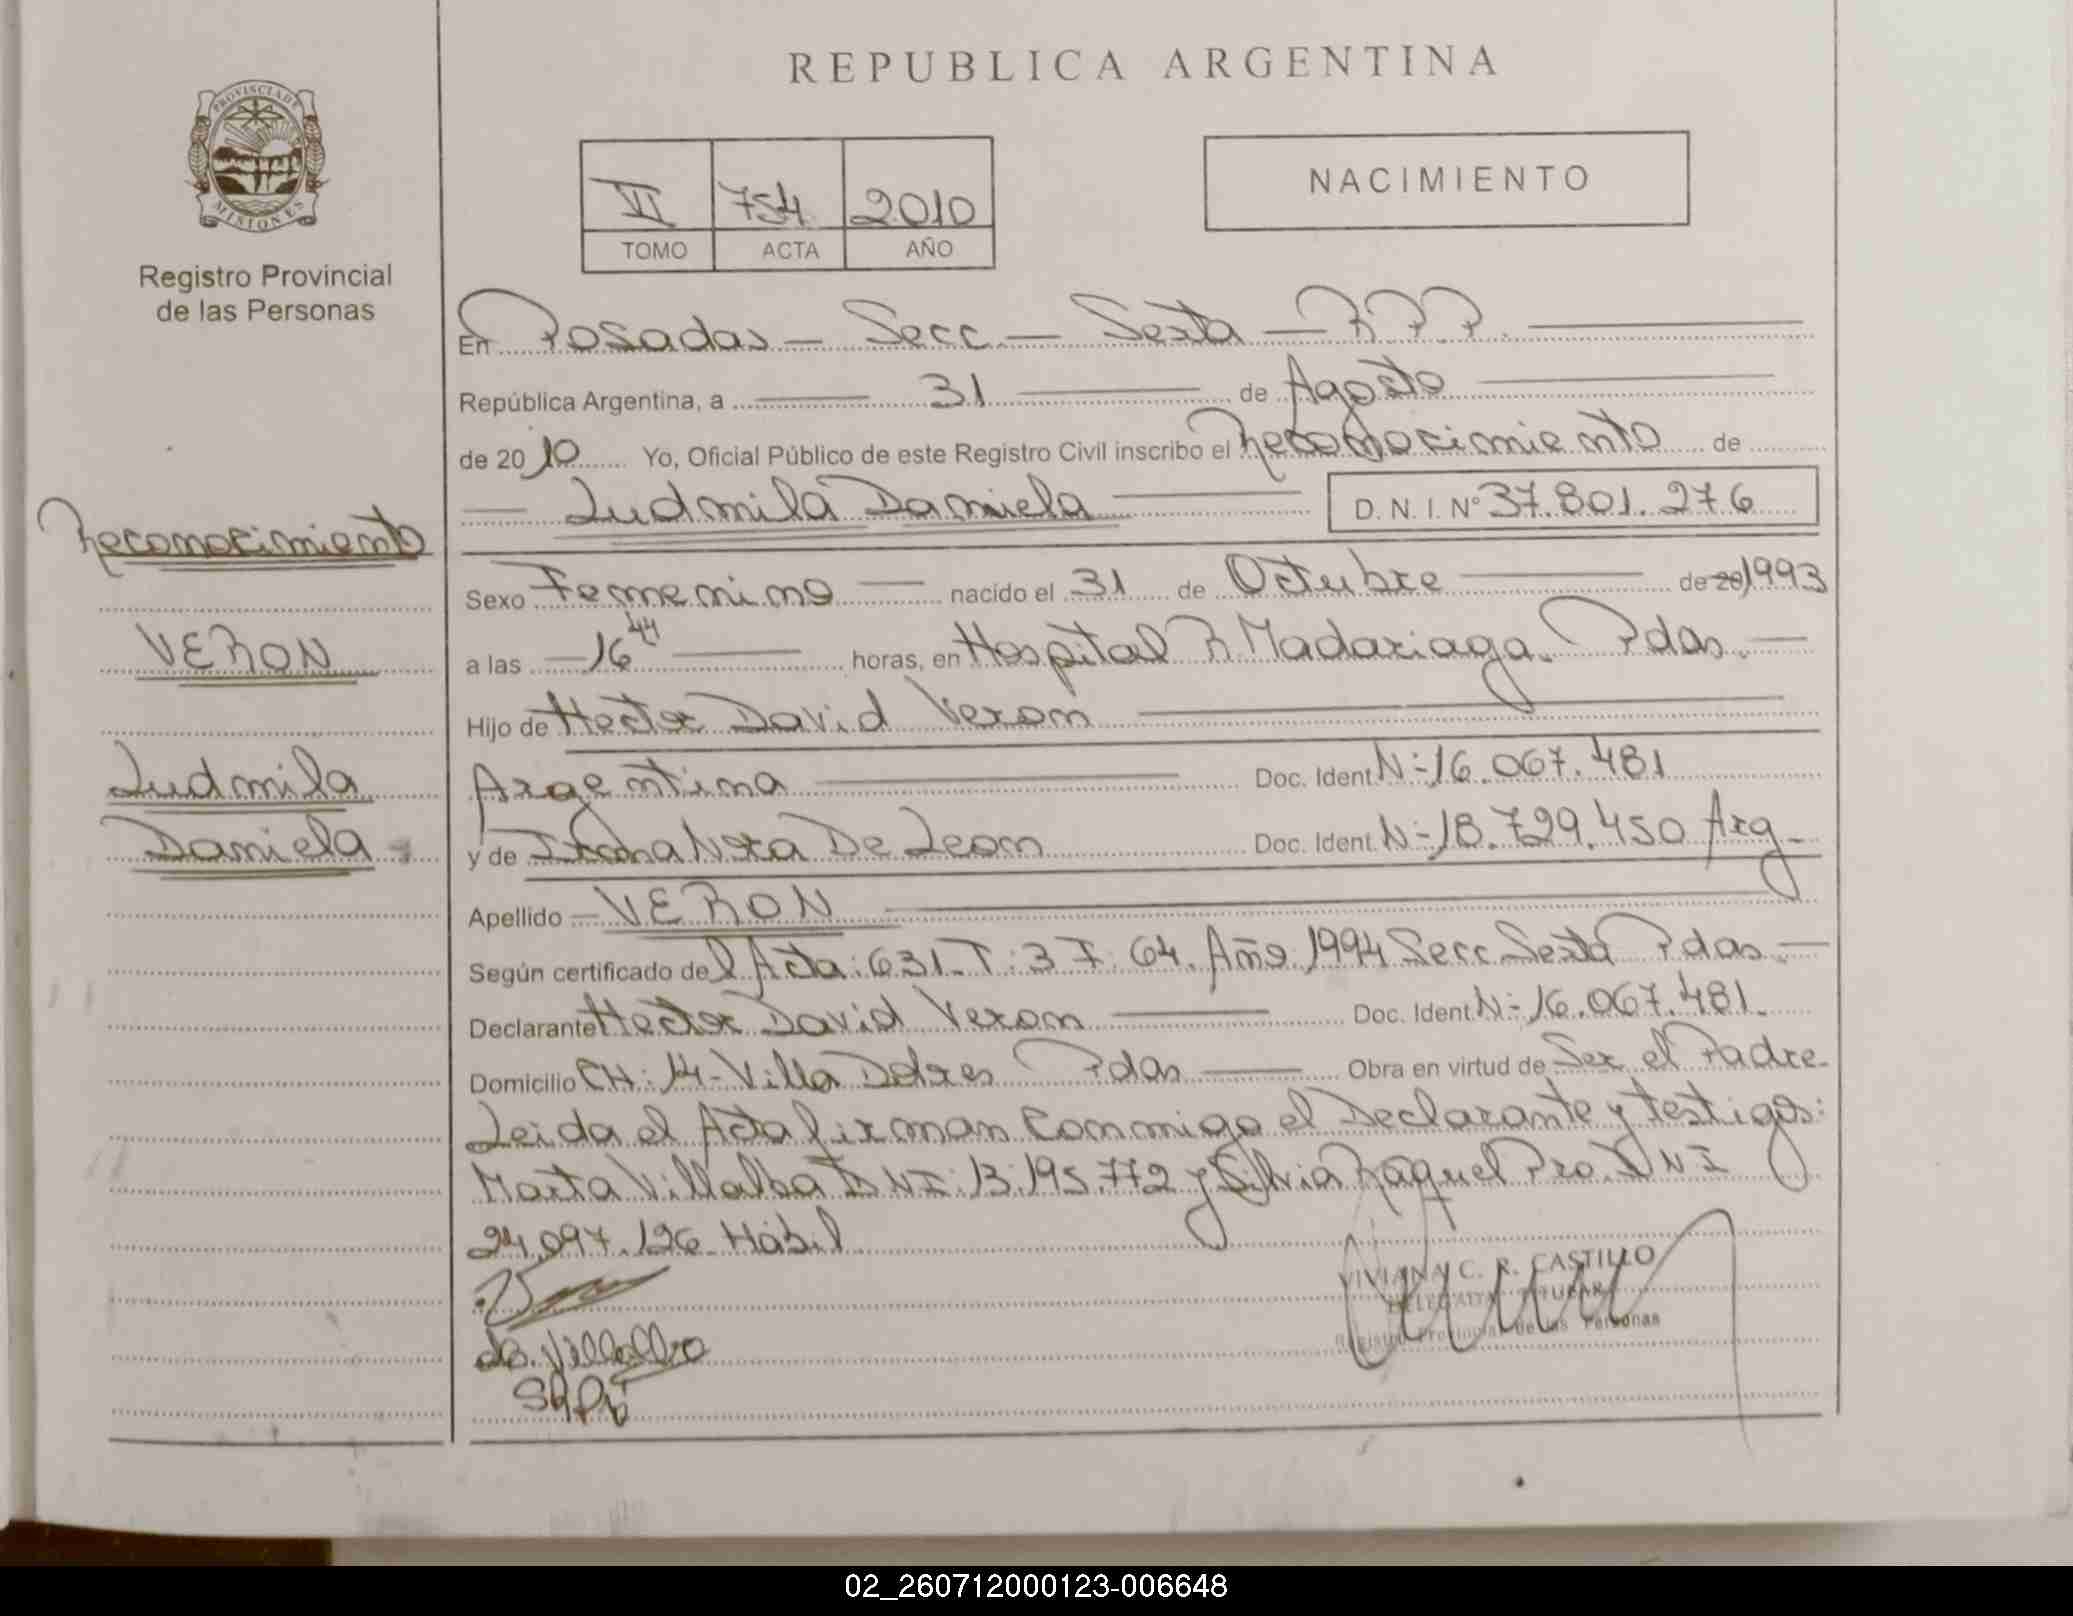 REPUBLICA ARGENTINA
PROVINCIA DE
MISIONES
Registro Provincial
de las Personas
VI 754 2010
TOMO ACTA AÑO
NACIMIENTO
En Posadas - Secc - Sexta - R.P.P.
República Argentina, a 31 de Agosto
de 2010 Yo, Oficial Público de este Registro Civil inscribo el Reconocimiento de
Ludmila Daniela D.N.I. Nº 37.801.276
Reconocimiento
VERON
Ludmila
Daniela
Sexo Femenino nacido el 31 de Octubre de 20 1993
a las 16 44 horas, en Hospital R. Madariaga. Pdas.
Hijo de Hector David Veron
Argentina Doc. Ident. N- 16.067.481
y de Irma Nora De Leon Doc. Ident. N- 18.729.450 Arg
Apellido VERON
Según certificado del Acta: 631. T: 3 F: 64. Año 1994 Secc. Sexta Pdas.
Declarante Hector David Veron Doc. Ident. N- 16.067.481.
Domicilio CH: 14- Villa Dolores Pdas Obra en virtud de Ser el Padre
Leida el Acta firman Conmigo el Declarante y testigos:
Marta Villalba DNI: 13.195.772 y Silvia Raquel Pro. DNI
24.097.126 Hábil
Villalba
VIVIANA C. R. CASTILLO
DELEGADA TITULAR
Registro Provincial de las Personas
02_260712000123-006648